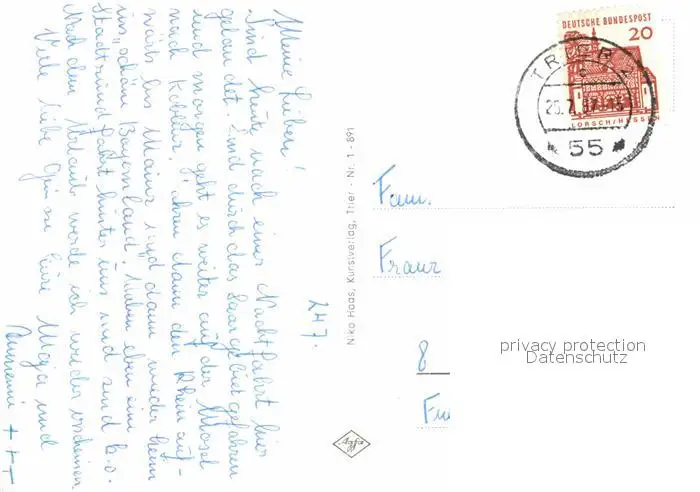 Meine Lieben!
Sind heute nach einer Nachtfahrt hier
gelandet. Sind durch das Saargebiet gefahren
und morgen geht es weiter auf der Mosel
nach Koblenz, fahren dann den Rhein auf-
wärts bis Mainz und dann wieder heim
ins schöne Bayernland. Haben eben eine
Stadtrundfahrt hinter uns und sind k.o.
Nach dem Urlaub werde ich wieder erscheinen.
Viele liebe Grüsse Eure Maja und
247.
Niko Haas, Kunstverlag, Trier - Nr. 1 - 891
Agfa
DEUTSCHE BUNDESPOST
20
LORSCH/HESSEN
TRIER 2
c
55
Fam.
Franz
8
privacy protection
Datenschutz